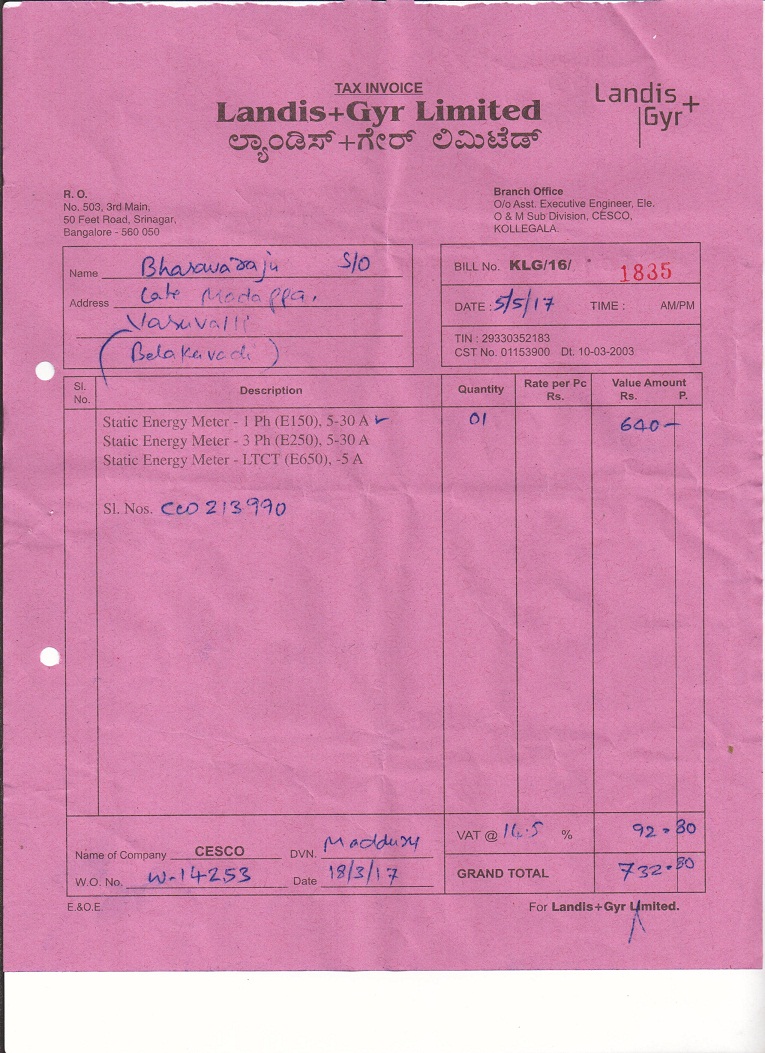 TAX INVOICE
Landis+Gyr Limited
ಲ್ಯಾಂಡಿಸ್+ಗೇರ್ ಲಿಮಿಟೆಡ್
Landis+
Gyr
R. O.
No. 503, 3rd Main,
50 Feet Road, Srinagar,
Bangalore - 560 050
Branch Office
O/o Asst. Executive Engineer, Ele.
O & M Sub Division, CESCO,
KOLLEGALA.
Name Bharavaraju S/O
Address Late Madappa,
Vasuvalli
(Belakavadi)
BILL No. KLG/16/ 1835
DATE : 5/5/17 TIME : AM/PM
TIN : 29330352183
CST No. 01153900 Dt. 10-03-2003
Sl. No. Description Quantity Rate per Pc Rs. Value Amount Rs. P.
Static Energy Meter - 1 Ph (E150), 5-30 A ✓ 01 640-
Static Energy Meter - 3 Ph (E250), 5-30 A
Static Energy Meter - LTCT (E650), -5 A
Sl. Nos. 213990
VAT @ 14.5 % 92.80
Name of Company CESCO DVN.
W.O. No. W-14253 Date 18/3/17
GRAND TOTAL 732.80
E.&O.E.
For Landis+Gyr Limited.